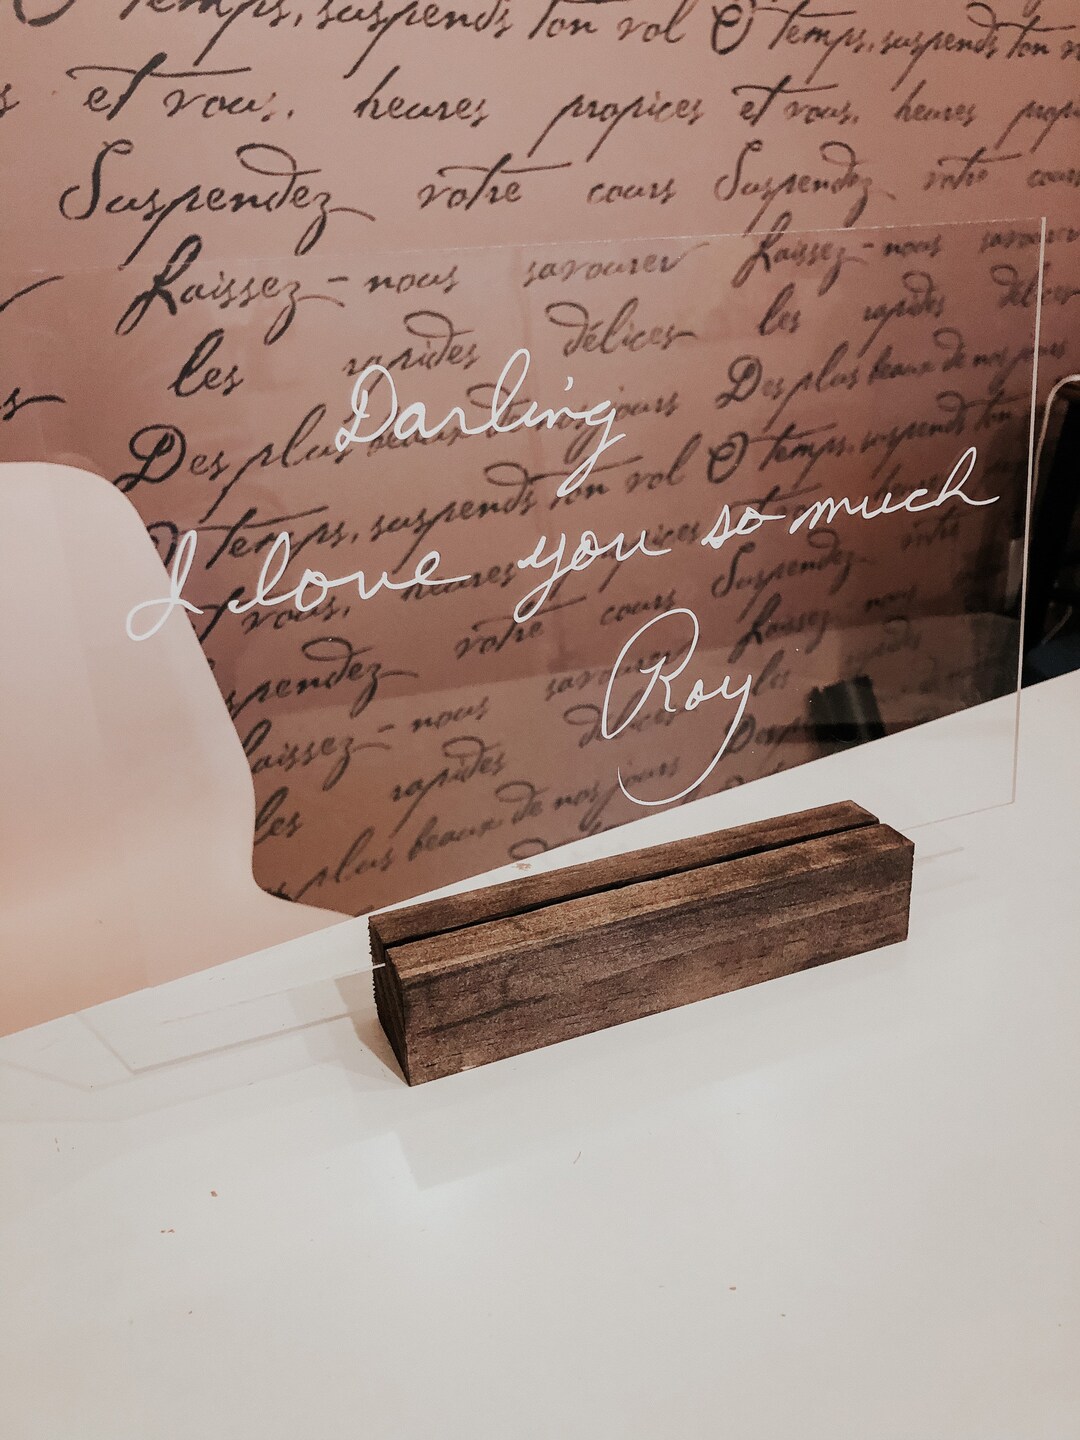 O temps, suspends ton vol O temps, suspends ton
et vous, heures propices et vous, heures
Suspendez votre cours Suspendez votre cours
Laissez-nous savourer Laissez-nous savourer
les rapides délices les rapides délices
Des plus beaux de nos jours Des plus beaux de nos jours
O temps, suspends ton vol O temps, suspends ton
vous, heures propices
votre cours Suspendez votre
Laissez-nous savourer Laissez-nous
les rapides délices les
plus beaux de nos jours Des plus
Darling
I love you so much
Roy